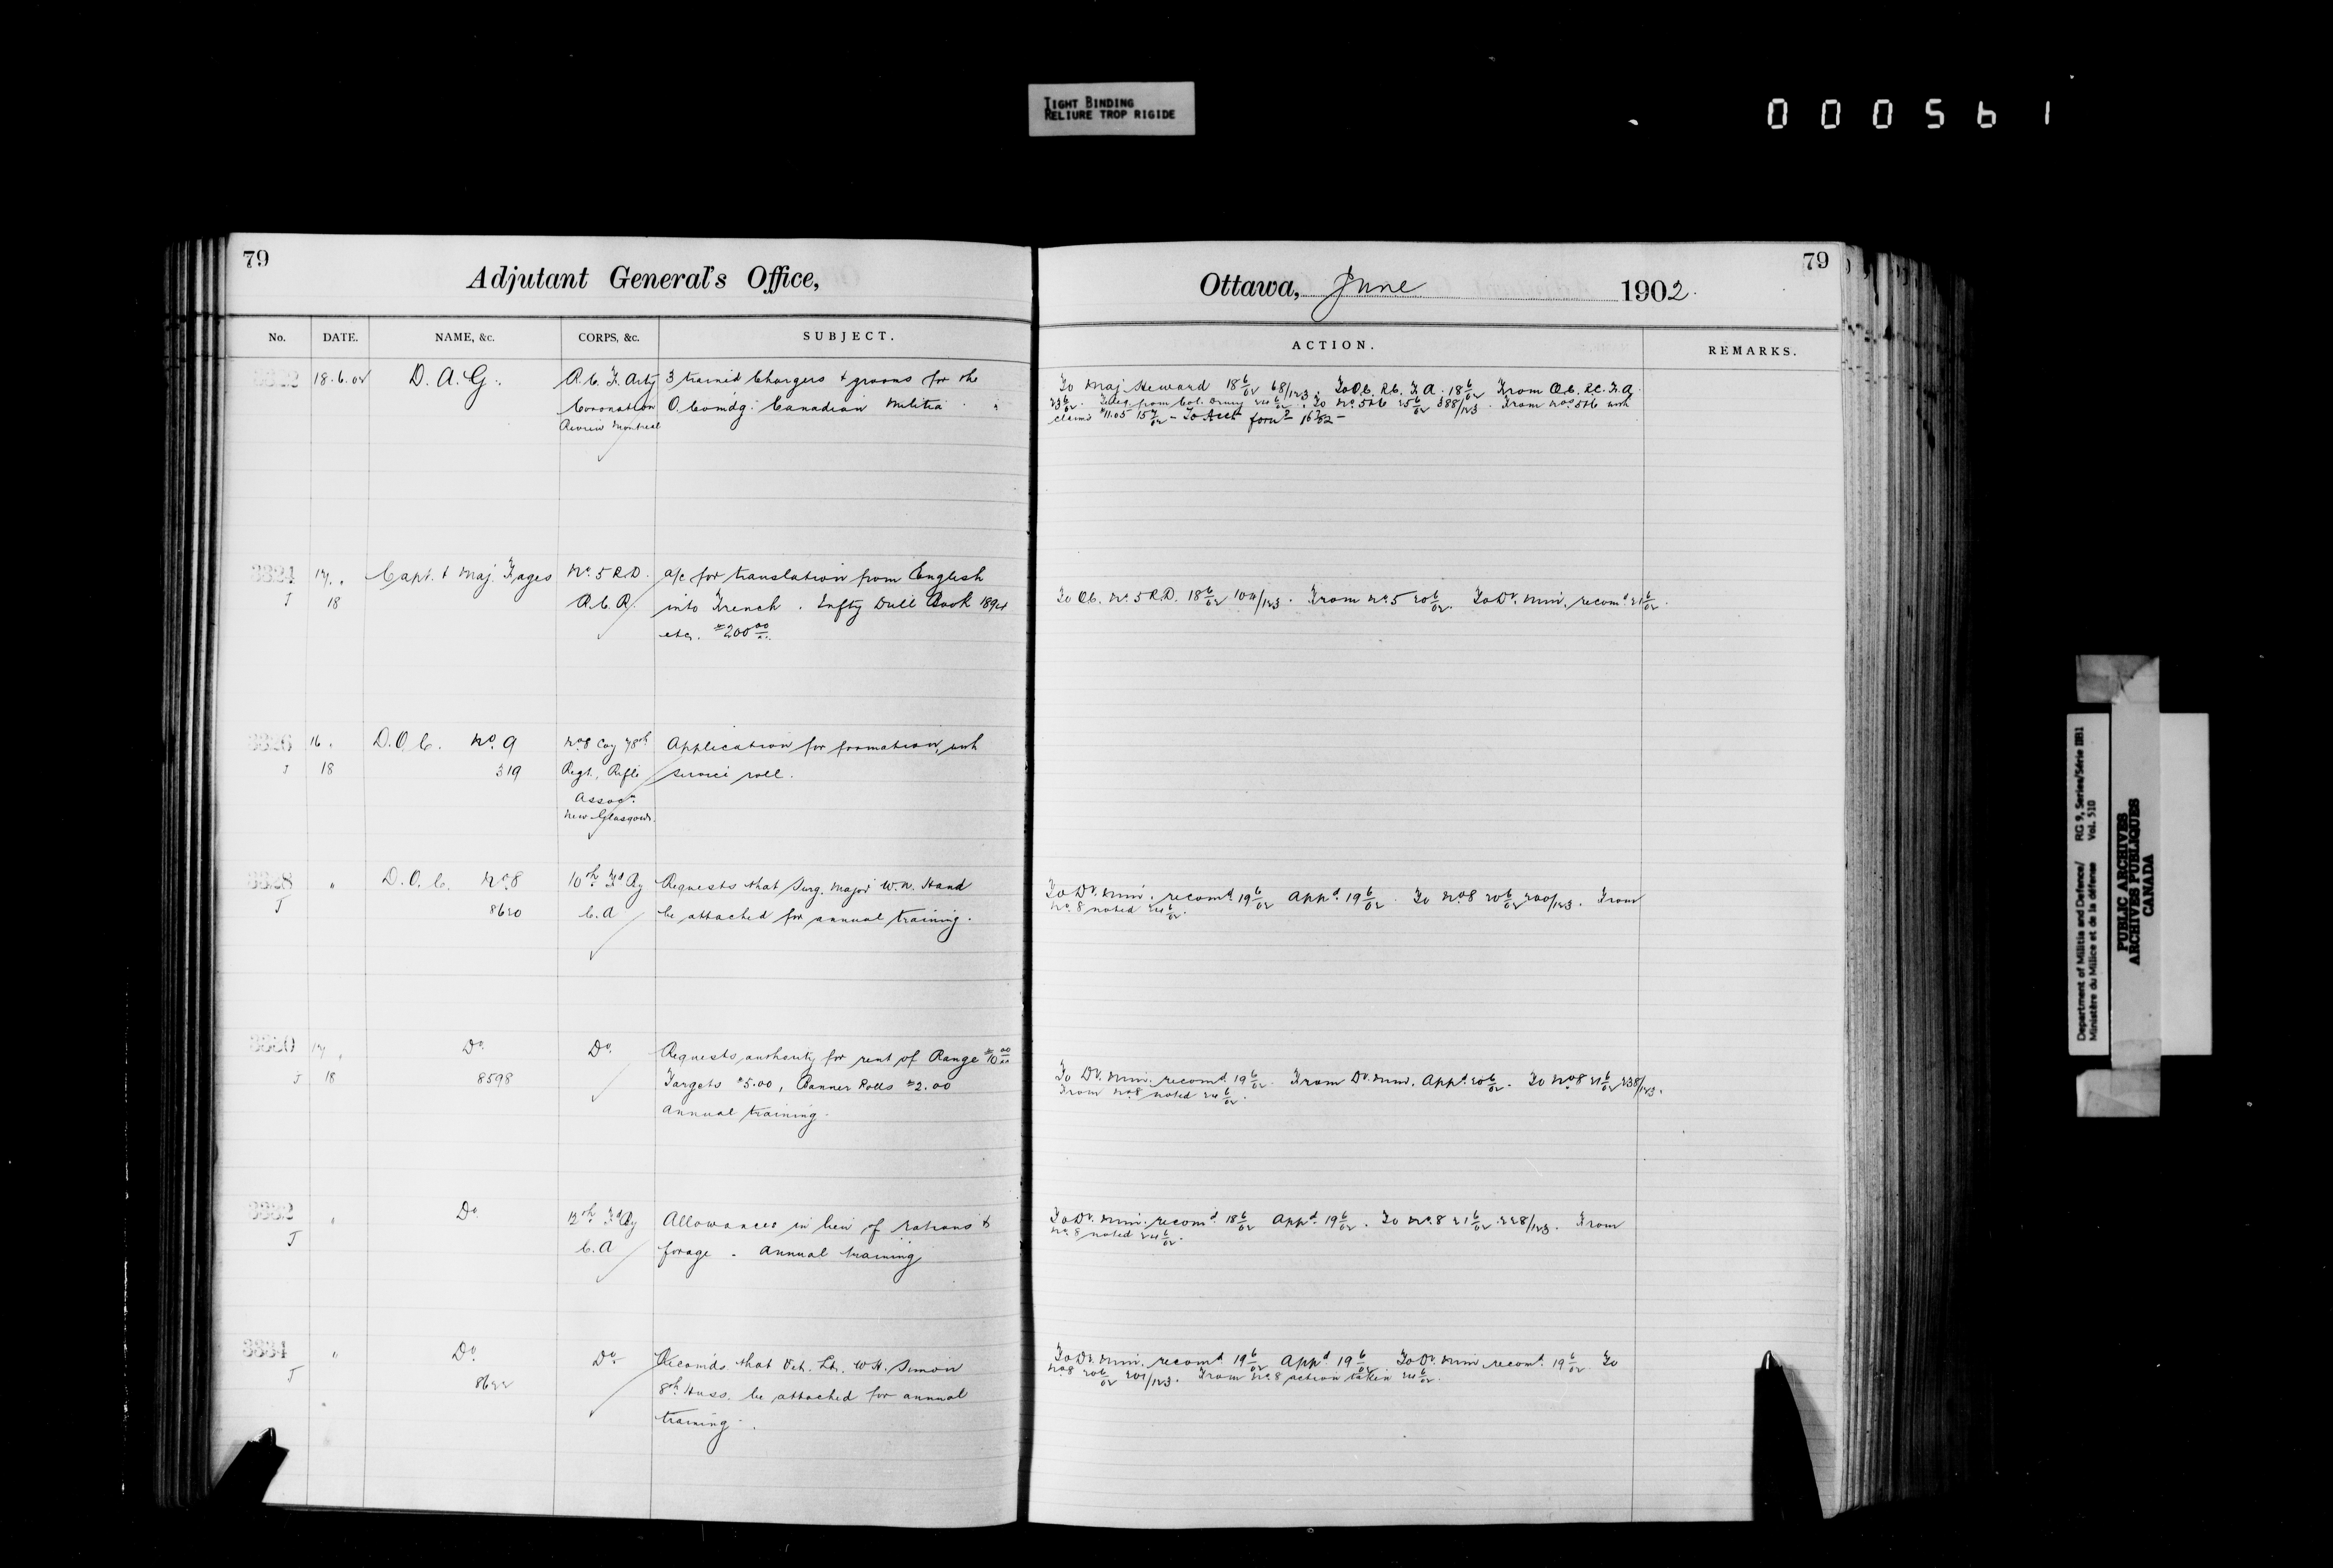 TIGHT BINDING
RELIURE TROP RIGIDE
000561
79
Adjutant General's Office,
No. DATE. NAME, &c. CORPS, &c. SUBJECT.
18.6.02 D.A.G. R.C.F. Arty 3 trained Chargers + grooms for the
Coronation O. Comdg. Canadian Militia
Review Montreal
3324 17 " Capt. & Maj. Fages No. 5 R.D. a/c for translation from English
J 18 R.C.R. into French. Infty Drill Book 1894
etc. $200 00
3326 16 " D.O.C. No. 9 No 8 Coy 78th Application for formation, with
J 18 319 Regt. Rifle service roll.
Assocn.
New Glasgow.
3328 " D.O.C. No. 8 10th Fd By Requests that Surg. Major W.N. Hand
J 8620 C.A be attached for annual training.
3330 17 " Do. Do. Requests authority for rent of Range $10 00
J 18 8598 Targets $5.00, Banner Rolls $2.00
annual training.
3332 " Do. 12th Fd By Allowances in lieu of rations &
J C.A forage - annual training
3334 " Do. Do. Recomds. that Vet. Lt. W.H. Simon
J 8622 8th Huss. be attached for annual
training.
79
Ottawa, June 1902.
ACTION. REMARKS.
To Maj. Heward 18 6/02 68/123. To O.C. R.C.F.A. 18 6/02 From O.C. R.C.F.A.
23 6/02. Teleg. from Col. 24 6/02. To No. 5&6 25 6/02 388/123. From Nos 5&6 with
claims $11.05 15 7/02 - To Acct forw'd 16 7/02 -
To O.C. No. 5 R.D. 18 6/02 104/123. From No. 5 20 6/02. To Dy. Min. recomd. 21 6/02.
To Dy. Min. recomd 19 6/02 Appd. 19 6/02. To No 8 20 6/02 200/123. From
No. 8 noted 24 6/02.
To Dy. Min. recomd. 19 6/02. From Dy. Min. Appd. 20 6/02. To No 8 21 6/02 238/123.
From No 8 noted 24 6/02.
To Dy. Min. recomd. 18 6/02 Appd. 19 6/02. To No. 8 21 6/02 228/123. From
No. 8 noted 24 6/02.
To Dy. Min. recomd. 19 6/02 Appd. 19 6/02. To Dy. Min recomd. 19 6/02. To
No 8 20 6/02 201/123. From No. 8 action taken 24 6/02.
Department of Militia and Defence/ RG 9, Series/Série IIB1
Ministère du Milice et de la défense Vol. 510
PUBLIC ARCHIVES
ARCHIVES PUBLIQUES
CANADA